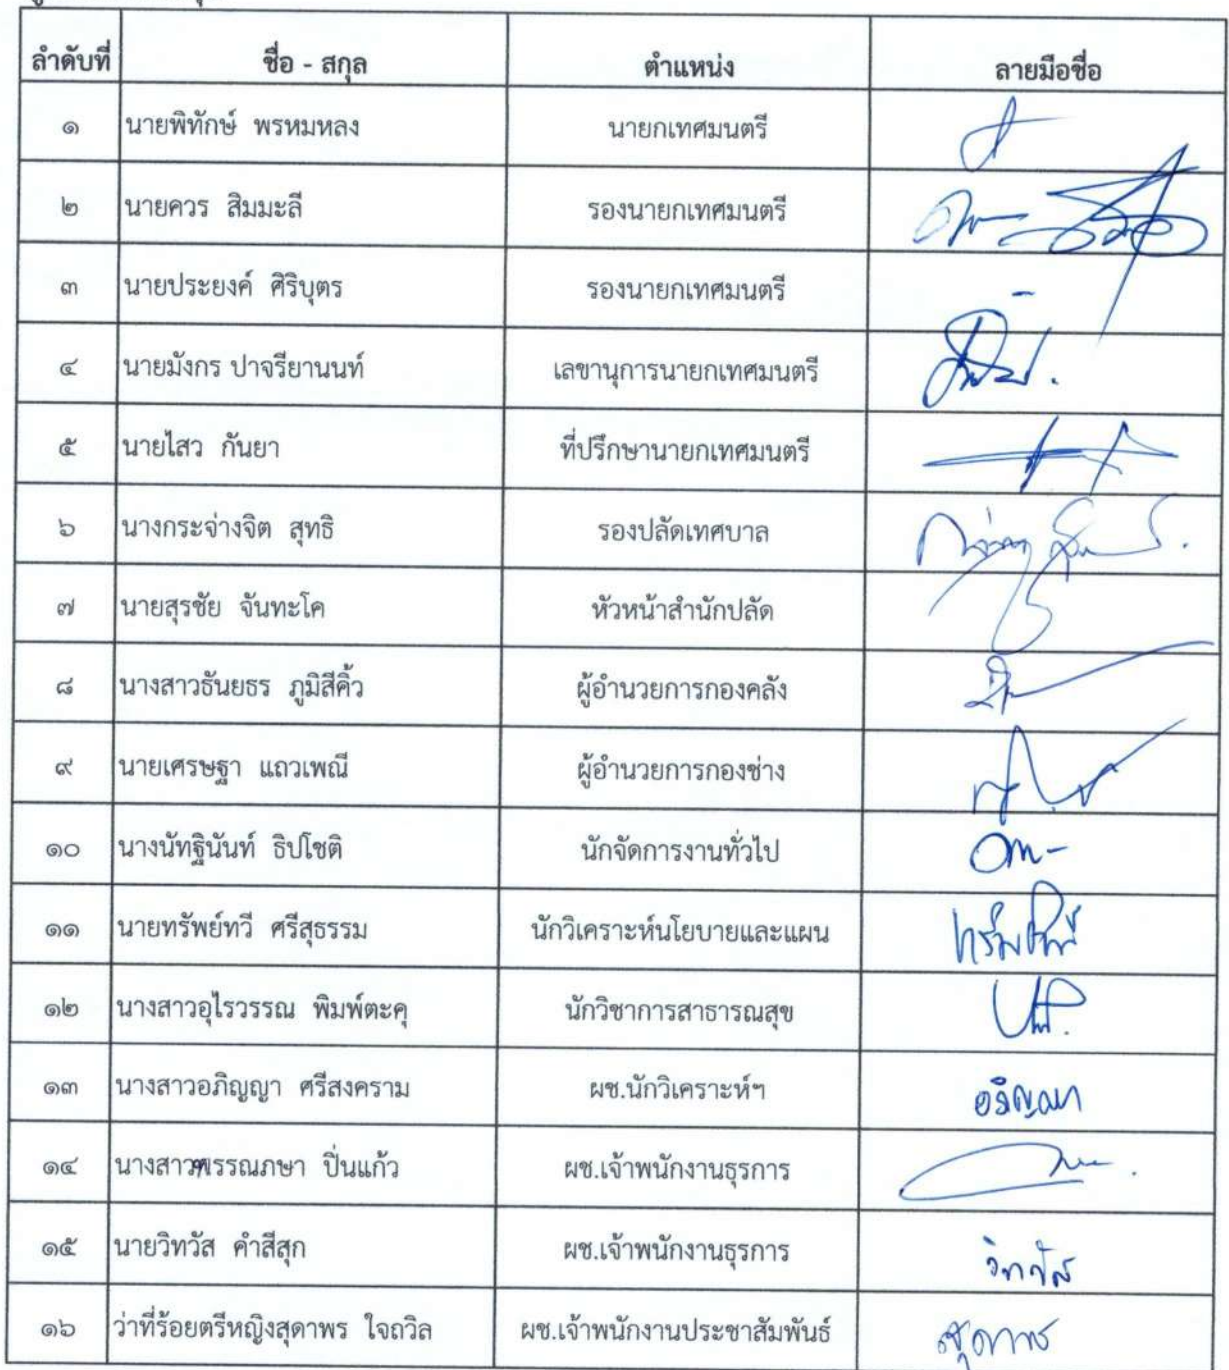 ลำดับที่ ชื่อ - สกุล ตำแหน่ง ลายมือชื่อ
๑ นายพิทักษ์ พรหมหลง นายกเทศมนตรี
๒ นายควร สิมมะลี รองนายกเทศมนตรี
๓ นายประยงค์ ศิริบุตร รองนายกเทศมนตรี
๔ นายมังกร ปาจรียานนท์ เลขานุการนายกเทศมนตรี
๕ นายไสว กันยา ที่ปรึกษานายกเทศมนตรี
๖ นางกระจ่างจิต สุทธิ รองปลัดเทศบาล
๗ นายสุรชัย จันทะโค หัวหน้าสำนักปลัด
๘ นางสาวธันยธร ภูมิสีคิ้ว ผู้อำนวยการกองคลัง
๙ นายเศรษฐา แถวเพณี ผู้อำนวยการกองช่าง
๑๐ นางนัทฐินันท์ ธิปโชติ นักจัดการงานทั่วไป
๑๑ นายทรัพย์ทวี ศรีสุธรรม นักวิเคราะห์นโยบายและแผน
๑๒ นางสาวอุไรวรรณ พิมพ์ตะคุ นักวิชาการสาธารณสุข
๑๓ นางสาวอภิญญา ศรีสงคราม ผช.นักวิเคราะห์ฯ อภิญญา
๑๔ นางสาวพรรณภษา ปิ่นแก้ว ผช.เจ้าพนักงานธุรการ
๑๕ นายวิทวัส คำสีสุก ผช.เจ้าพนักงานธุรการ วิทวัส
๑๖ ว่าที่ร้อยตรีหญิงสุดาพร ใจถวิล ผช.เจ้าพนักงานประชาสัมพันธ์ สุดาพร